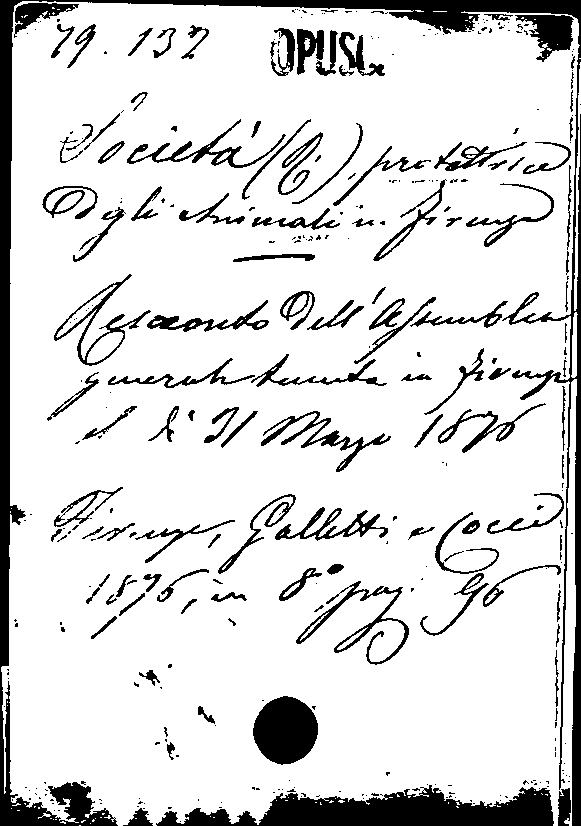 79. 132 OPUSC.
Società (R.) protettrice
degli Animali in Firenze
Resoconto dell'Assemblea
generale tenuta in Firenze
il dì 31 Marzo 1876
Firenze, Galletti e Cocci
1876, in 8° pag. 96